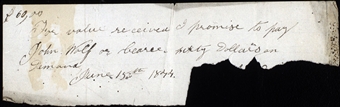 $ 60,00
For value received I promise to pay
John Wolf or bearer sixty dollars on
demand
June 15th 184